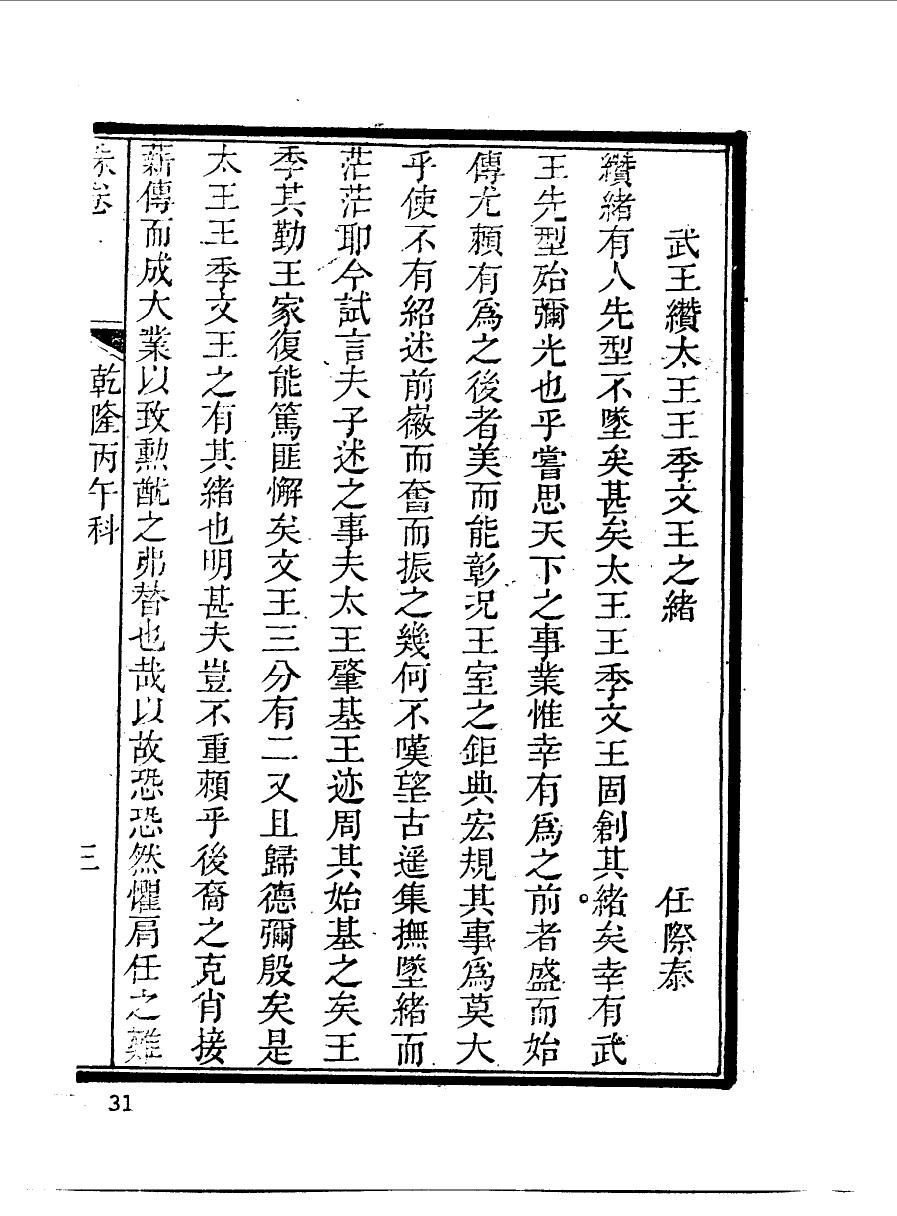 武王纘太王王季文王之緒　任際泰
纘緒有人先型不墜矣甚矣太王王季文王固創其緒矣幸有武
王先型始彌光也乎嘗思天下之事業惟幸有爲之前者盛而始
傳尤賴有爲之後者美而能彰況王室之鉅典宏規其事爲莫大
乎使不有紹述前徽而奮而振之幾何不嘆望古遥集撫墜緒而
茫茫耶今試言夫子述之事夫太王肇基王迹周其始基之矣王
季其勤王家復能篤匪懈矣文王三分有二又且歸德彌殷矣是
太王王季文王之有其緒也明甚夫豈不重賴乎後裔之克肖接
薪傳而成大業以致勲猷之弗替也哉以故恐恐然懼肩任之難
硃卷　乾隆丙午科　三
31